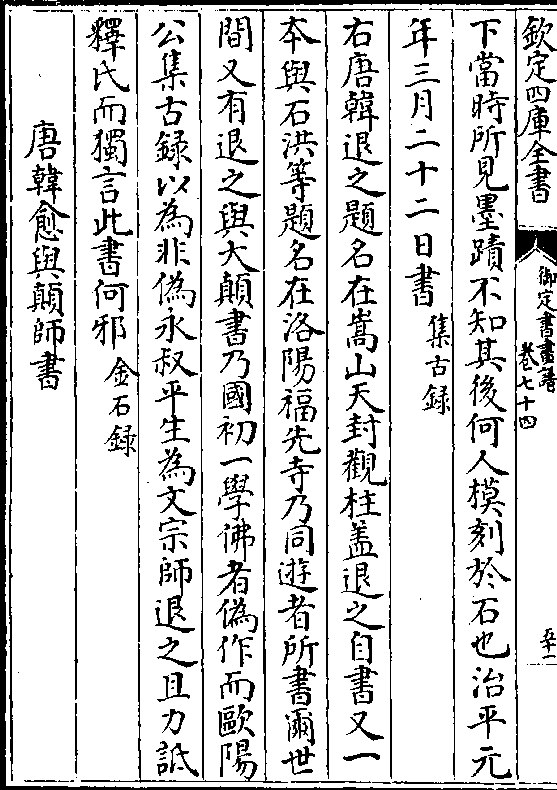 欽定四庫全書
御定書畫譜
卷七十四
五十一
下當時所見墨蹟不知其後何人模刻於石也治平元
年三月二十二日書集古録
右唐韓退之題名在嵩山天封觀柱盖退之自書又一
本與石洪等題名在洛陽福先寺乃同遊者所書爾世
間又有退之與大顛書乃國初一學佛者偽作而歐陽
公集古録以為非偽永叔平生為文宗師退之且力詆
釋氏而獨言此書何邪金石録
唐韓愈與顛師書